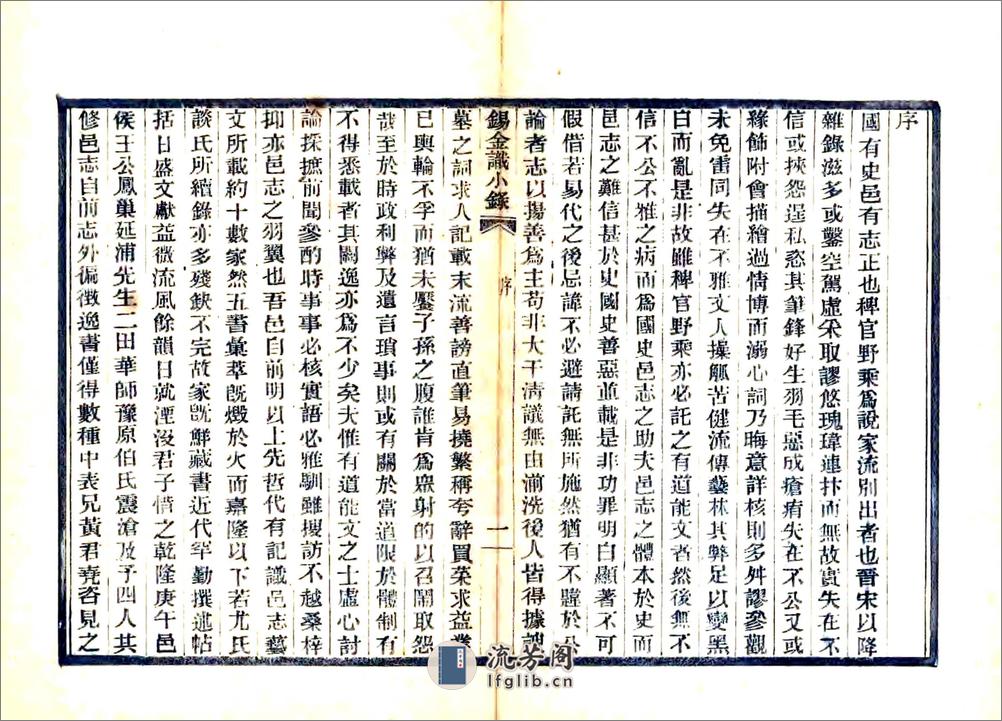 序
國有史邑有志正也稗官野乘爲說家流別出者也晉宋以降
雜錄滋多或鑿空駕虛采取謬悠瑰瑋連抃而無故實失在不
信或挾怨逞私恣其筆鋒好生羽毛惡成瘡痏失在不公又或
緣飾附會描繪過情博而溺心詞乃晦意詳核則多舛謬參觀
未免雷同失在不雅文人操觚苦健流傳藝林其弊足以變黑
白而亂是非故雖稗官野乘亦必託之有道能文者然後無不
信不公不雅之病而爲國史邑志之助夫邑志之體本於史而
邑志之難信甚於史國史善惡並載是非功罪明白顯著不可
假借若易代之後忌諱不必避請託無所施然猶有不釂於公
論者志以揚善爲主苟非大干清議無由湔洗後人皆得據諛
錫金識小錄
序
一
墓之詞求入記載末流善謗直筆易撓繁稱夸辭買榮求益業
已輿論不孚而猶未饜子孫之腹誰肯爲眾射的以召鬧取怨
哉至於時政利弊及遺言瑣事則或有關於當道限於體制有
不得悉載者其闕逸亦爲不少矣夫惟有道能文之士虛心討
論採摭前聞參酌時事事必核實語必雅馴雖搜訪不越桑梓
抑亦邑志之羽翼也吾邑自前明以上先哲代有記識邑志藝
文所載約十數家然五善彙草旣燬於火而嘉隆以下若尤氏
談氏所續錄亦多殘缺不完故家旣鮮藏書近代罕勤撰述帖
括日盛文獻益微流風餘韻日就湮沒君子惜之乾隆庚午邑
侯王公鳳巢延浦先生二田華師豫原伯氏震滄及予四人其
修邑志自前志外徧徵逸書僅得數種中表兄黃君堯咨見之
流芳阁
lfglib.cn